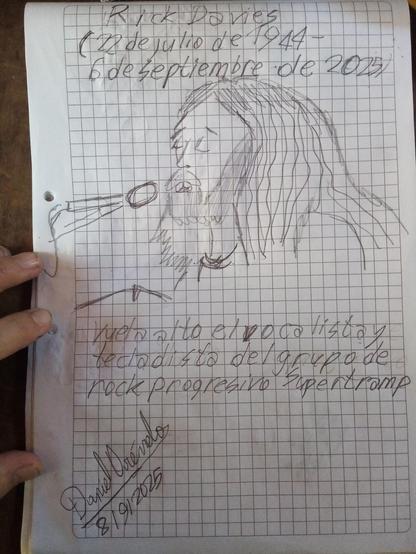 Rick Davies
(22 de julio de 1944-
6 de septiembre de 2025)
vuela alto el vocalista y
tecladista del grupo de
rock progresivo Supertramp
Daniel Arévalo
8/9/2025